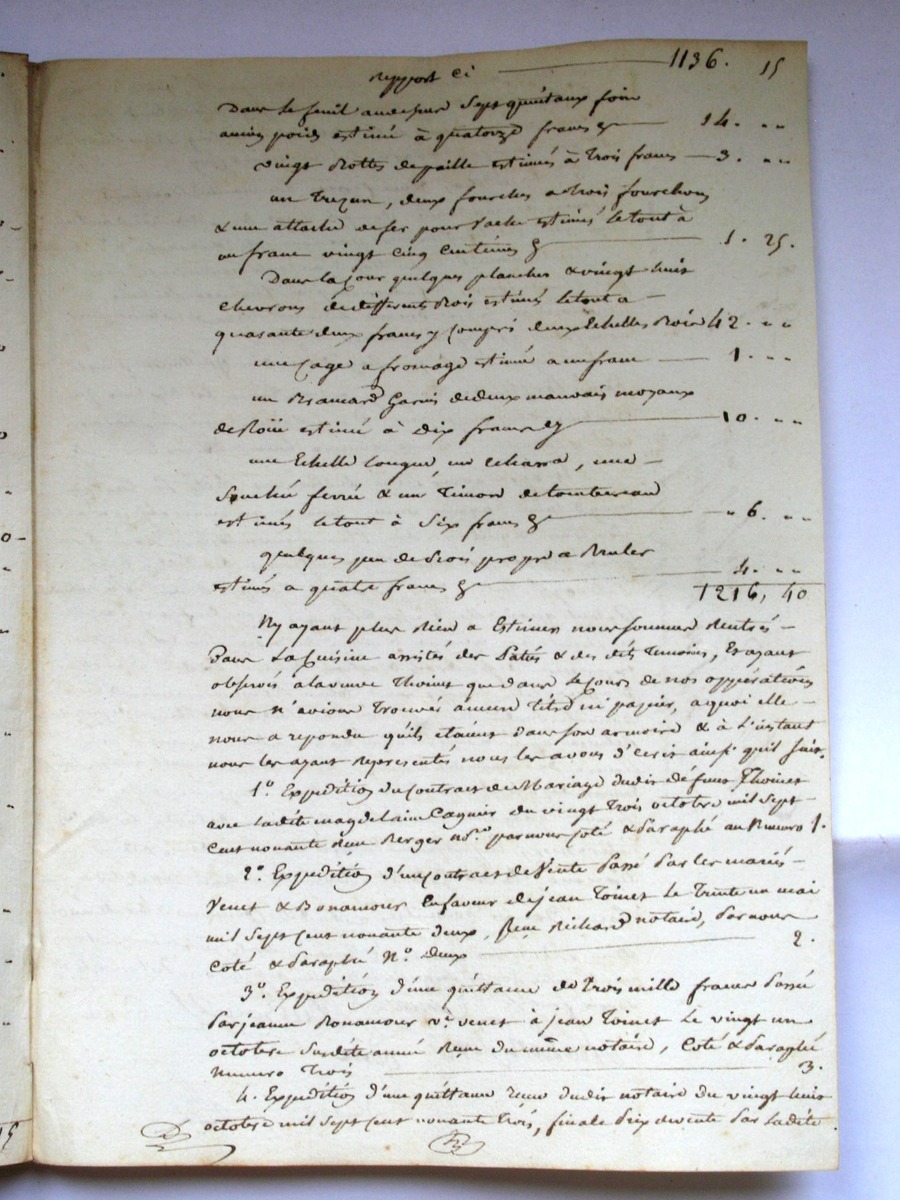 Rapport ci 1136. 15
Dans le fenil au dessus sept quintaux foin
ancien poids estimé à quatorze francs 14. " "
vingt Bottes de paille estimés à trois francs 3. " "
un Trezun, deux fourches a trois fourchons
& une attache de fer pour vache estimés le tout à
un franc vingt cinq centimes 1. 25.
Dans la cour quelques planches & vingt huit
chevrons de différents Bois estimés le tout a
quarante deux francs y compris deux Echelles Bois 42. " "
une cage a fromage estimé a un franc 1. " "
un Brancard Garni de deux mauvais moyaux
de Roüe estimé à Dix francs 10. " "
une Echelle longue, un , une
ferrée & un Timon de tombereau
estimés le tout à Six francs " 6. " "
quelques peu de Bois propre a Bruler
estimés a quatre francs 4. " "
1216, 40
N'y ayant plus Rien a Estimer nous sommes Rentrés
Dans La Cuisine assistés des & des dits Temoins, Et ayant
observés a la veuve Thoinet que dans le Cours de nos oppérations
nous n'avions Trouvés aucun titre ni papier, a quoi elle
nous a repondu qu'ils etaient dans son armoire & à L'instant
nous les ayant Representés nous les avons d'ecrit ainsi qu'il suit.
1°. Expedition du Contract de Mariage dudit défunt Thoinet
avec ladite magdelaine Cagnier du vingt Trois octobre mil sept
Cent nonante Reçu Berger nore. par nous Coté & Paraphé au Numero 1.
2°. Expedition d'un contract de Vente Passé Par les mariés
Venet & Bonamour En faveur de jean Toinet Le Trente un mai
mil Sept Cent nonante deux, Reçu Richard notaire, Par nous
Coté & Paraphé N°. Deux 2.
3°. Expedition d'une quittance de Trois mille francs Passée
Par jeanne Bonamour ve. venet à jean Toinet Le vingt un
octobre Susdite année Reçue du même notaire, Coté & Paraphé
Numero Trois 3.
4. Expedition d'une quittance reçue dudit notaire du vingt huit
octobre mil Sept Cent nonante Trois, finale Prix de vente Par Ladite